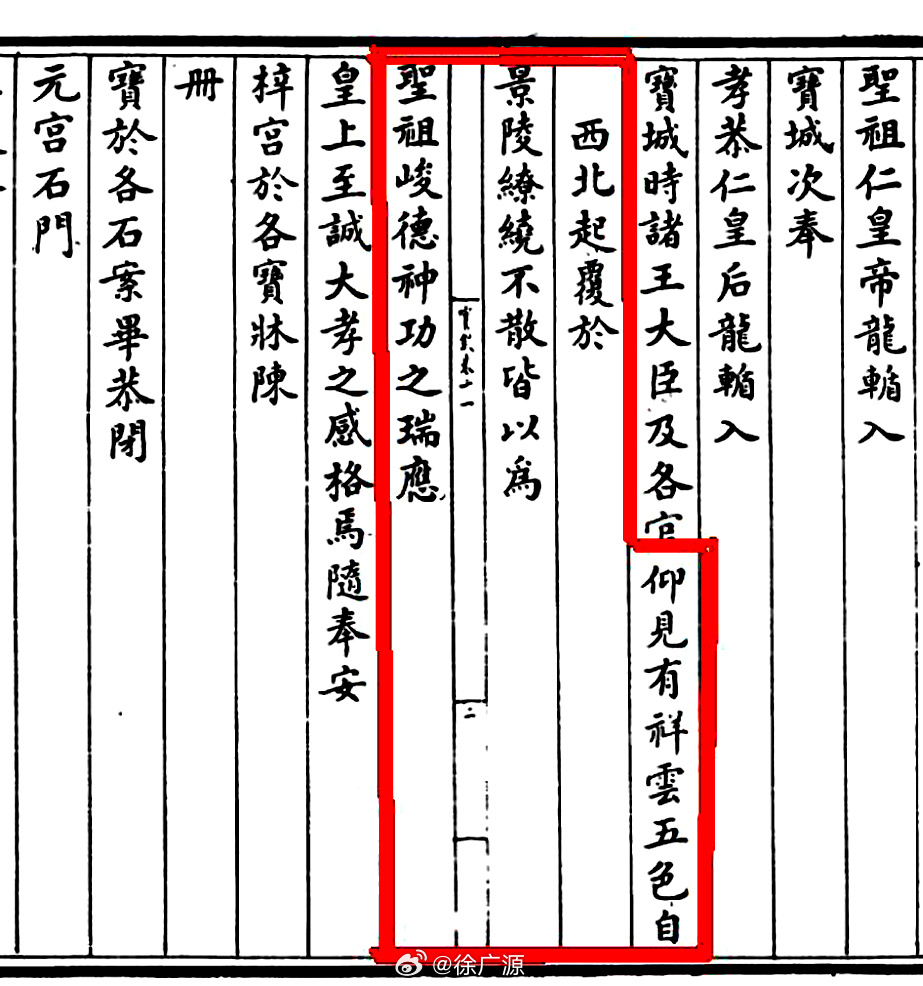 聖祖仁皇帝龍輴入
寶城次奉
孝恭仁皇后龍輴入
寶城時諸王大臣及各官仰見有祥雲五色自
西北起覆於
景陵繚繞不散皆以爲
二
聖祖峻德神功之瑞應
皇上至誠大孝之感格焉隨奉安
梓宮於各寶牀陳
冊
寶於各石案畢恭閉
元宮石門
@徐广源